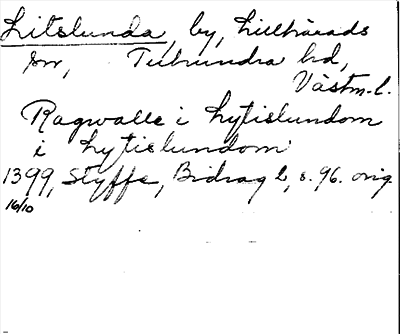 Litslunda, by, Lillhärads
sn, Tuhundra hd,
Västm. l.
Ragwalle i Lytislundom
i Lytislundom
1399, Styffe, Bidrag 2, s. 96. orig.
16/10